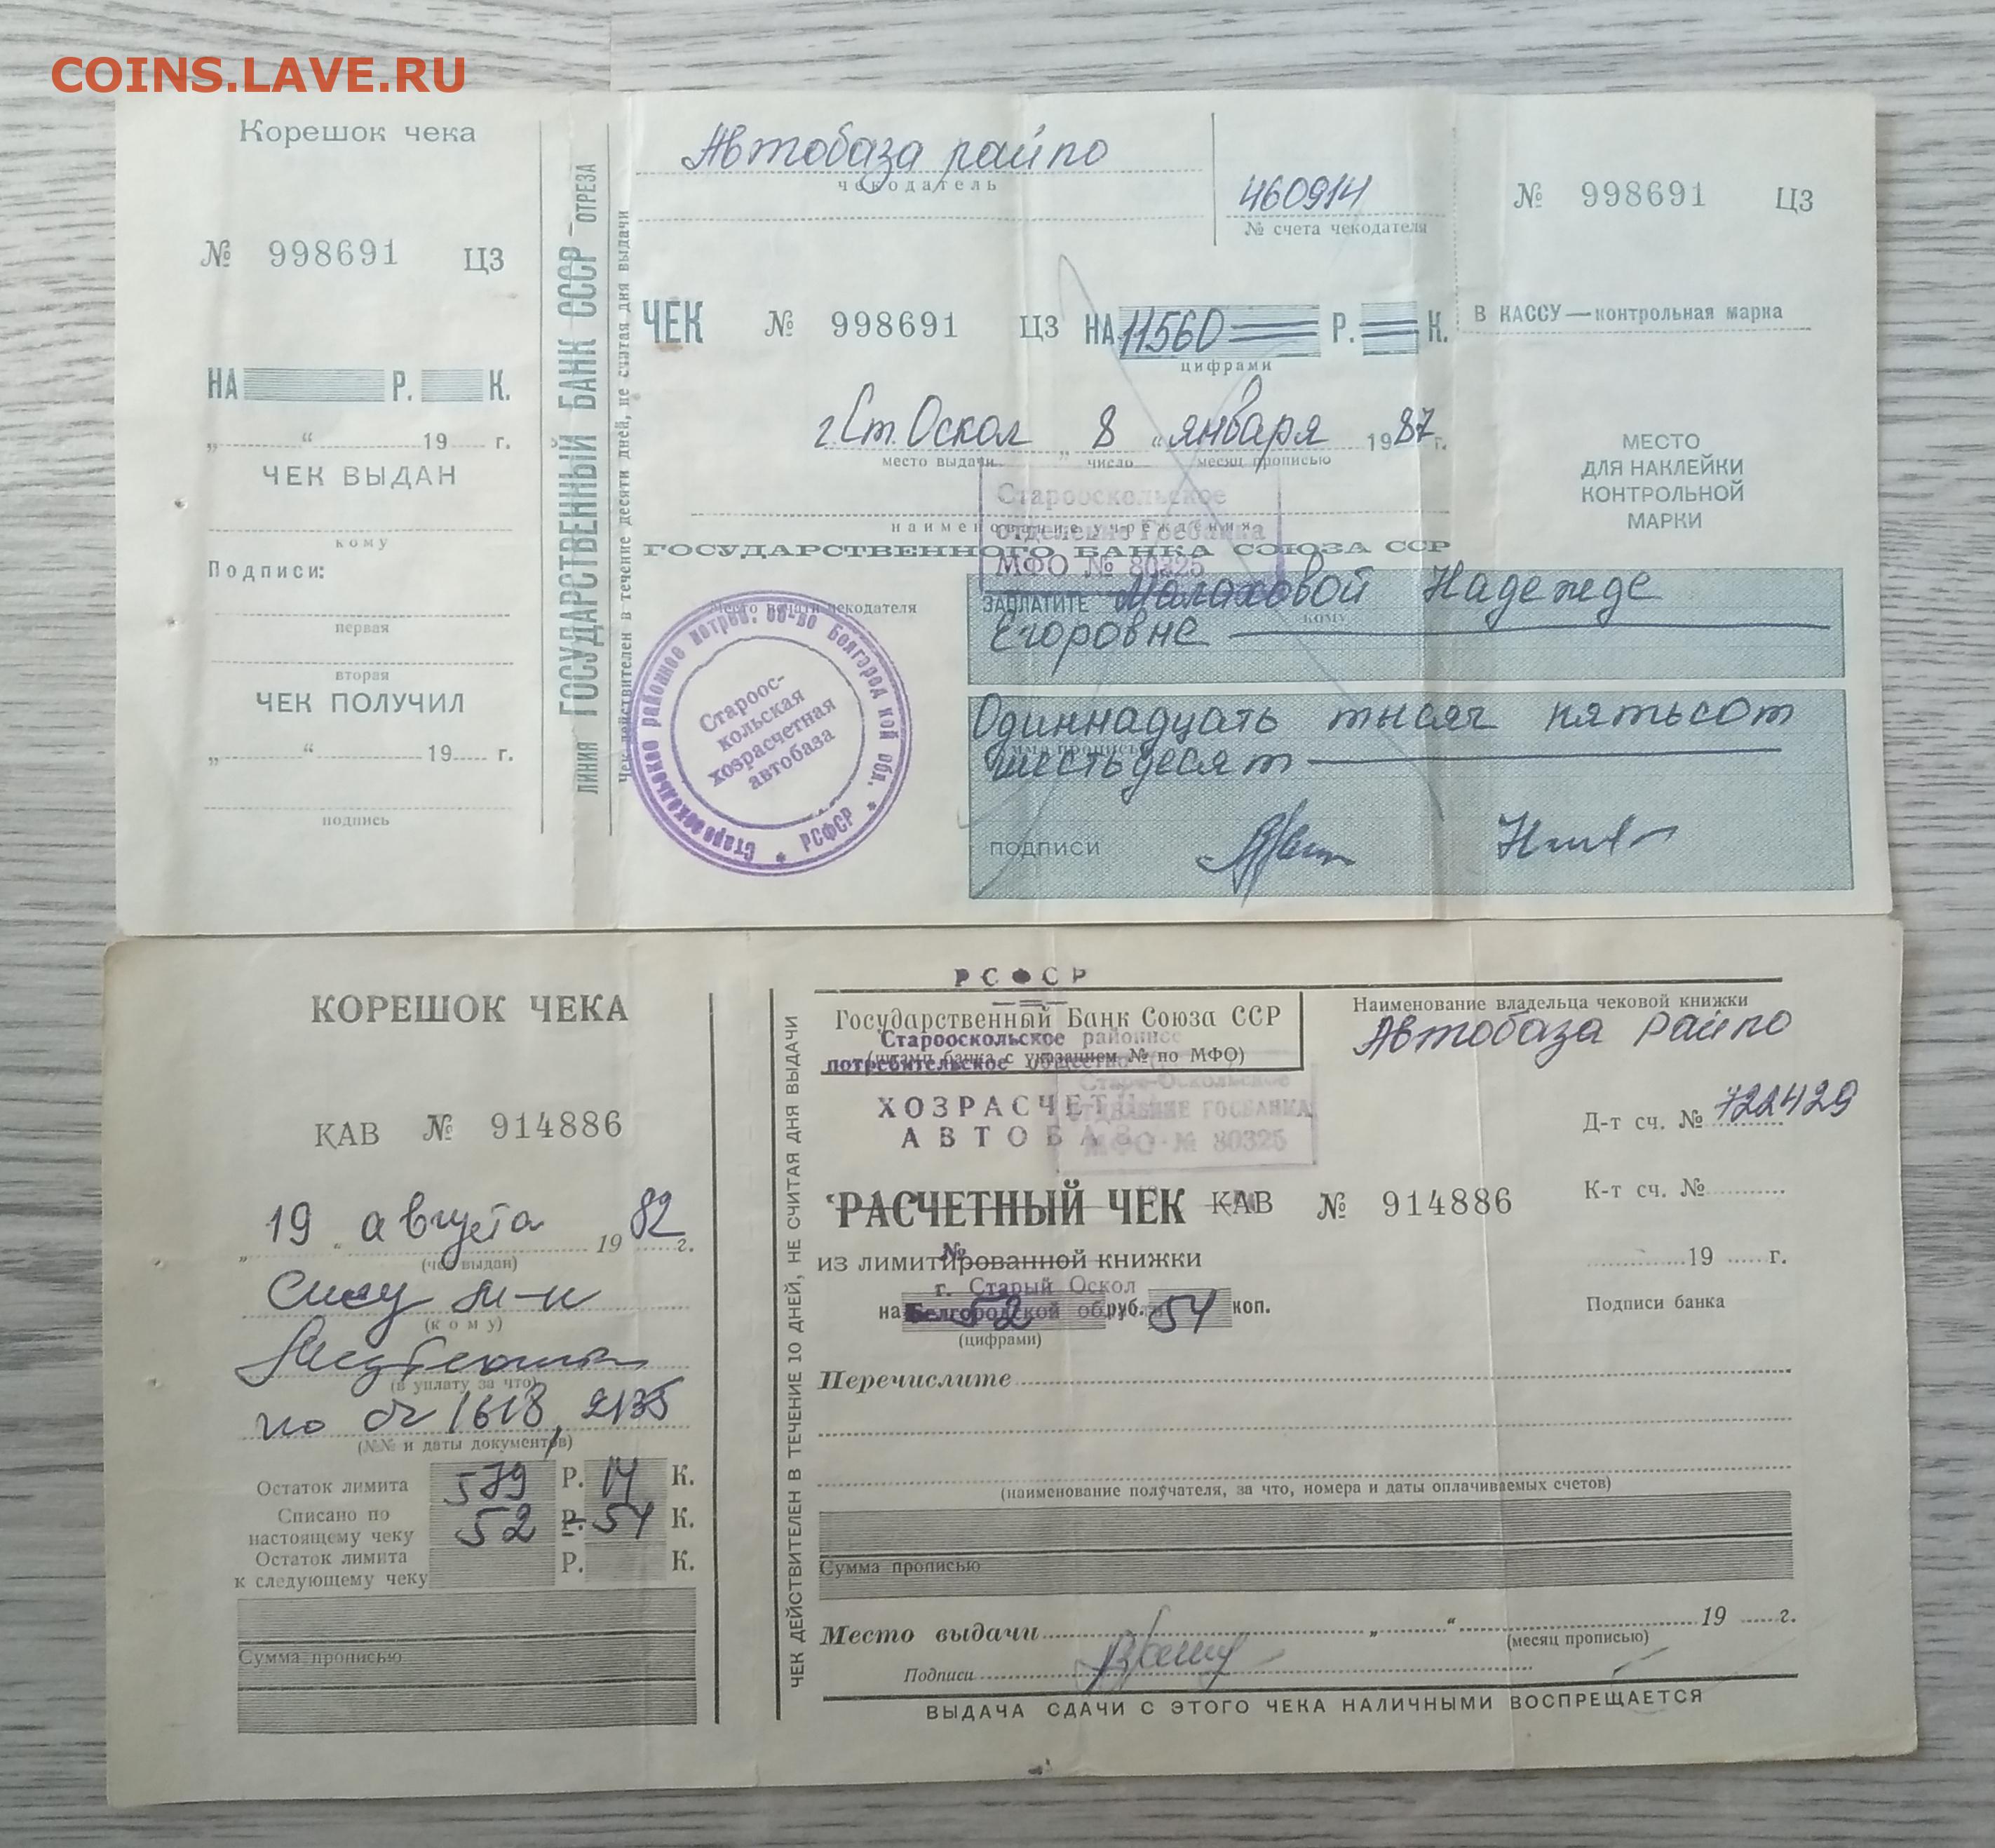 COINS.LAVE.RU
Корешок чека
№ 998691 ЦЗ
НА Р. К.
„ “ 19 г.
ЧЕК ВЫДАН
кому
Подписи:
первая
вторая
ЧЕК ПОЛУЧИЛ
„ “ 19 г.
подпись
ЛИНИЯ ОТРЕЗА
ГОСУДАРСТВЕННЫЙ БАНК СССР
Чек действителен в течение десяти дней, не считая дня выдачи
Автобаза райпо
чекодатель
460914
№ счета чекодателя
ЧЕК № 998691 ЦЗ НА 11560 Р. К.
цифрами
г. Ст. Оскол „ 8 “ января 1987 г.
место выдачи число месяц прописью
наименование учреждения
ГОСУДАРСТВЕННОГО БАНКА СОЮЗА ССР
Старооскольское
отделение Госбанка
МФО № 80325
Место печати чекодателя
Старооскольское районное потреб. об-во Белгородской обл. * РСФСР *
Староос-
кольская
хозрасчетная
автобаза
ЗАПЛАТИТЕ Малаховой Надежде
кому
Егоровне
Одиннадцать тысяч пятьсот
сумма прописью
шестьдесят
ПОДПИСИ
№ 998691 ЦЗ
В КАССУ — контрольная марка
МЕСТО
ДЛЯ НАКЛЕЙКИ
КОНТРОЛЬНОЙ
МАРКИ
КОРЕШОК ЧЕКА
КАВ № 914886
„ 19 “ августа 1982 г.
(чек выдан)
(кому)
(в уплату за что)
по сч 1618, 2135
(№№ и даты документов)
Остаток лимита 579 Р. 14 К.
Списано по
настоящему чеку 52 Р. 54 К.
Остаток лимита
к следующему чеку Р. К.
Сумма прописью
ЧЕК ДЕЙСТВИТЕЛЕН В ТЕЧЕНИЕ 10 ДНЕЙ, НЕ СЧИТАЯ ДНЯ ВЫДАЧИ
РСФСР
Государственный Банк Союза ССР
Старооскольское районное
(штамп банка с указанием № по МФО)
потребительское общество
ХОЗРАСЧЕТ
АВТОБАЗ
Старо-Оскольское
ОТДЕЛЕНИЕ ГОСБАНКА
МФО № 80325
Наименование владельца чековой книжки
Автобаза райпо
Д-т сч. № 722429
К-т сч. №
РАСЧЕТНЫЙ ЧЕК КАВ № 914886
из лимитированной книжки
№
19 г.
г. Старый Оскол
Белгородской области
на 52 руб. 54 коп.
(цифрами)
Подписи банка
Перечислите
(наименование получателя, за что, номера и даты оплачиваемых счетов)
Сумма прописью
Место выдачи „ “ 19 г.
(месяц прописью)
Подписи
ВЫДАЧА СДАЧИ С ЭТОГО ЧЕКА НАЛИЧНЫМИ ВОСПРЕЩАЕТСЯ